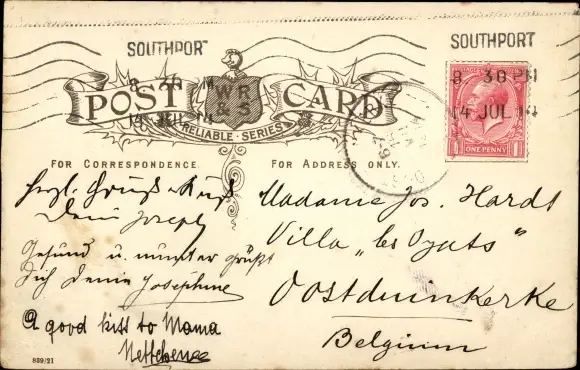 SOUTHPORT
8 30 PM
14 JUL 14
SOUTHPORT
8 30 PM
14 JUL 14
POST CARD
WR
& S
RELIABLE · SERIES
ONE PENNY
FOR CORRESPONDENCE.
FOR ADDRESS ONLY.
Herzl. Gruß u. Kuß
Dein Joseph
Gesund u. munter grüßt
Dich Deine Josephine
A good kiss to Mama
Madame Jos. Hardt
Villa „les Oyats"
Oostduinkerke
Belgium
839/21